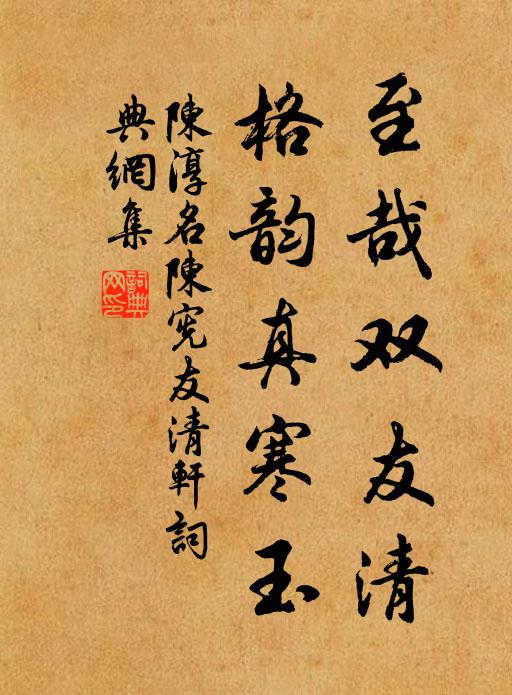 至哉双友清
格韵真寒玉
陳淳名陳宪友清軒詞
典網集
詞典网印